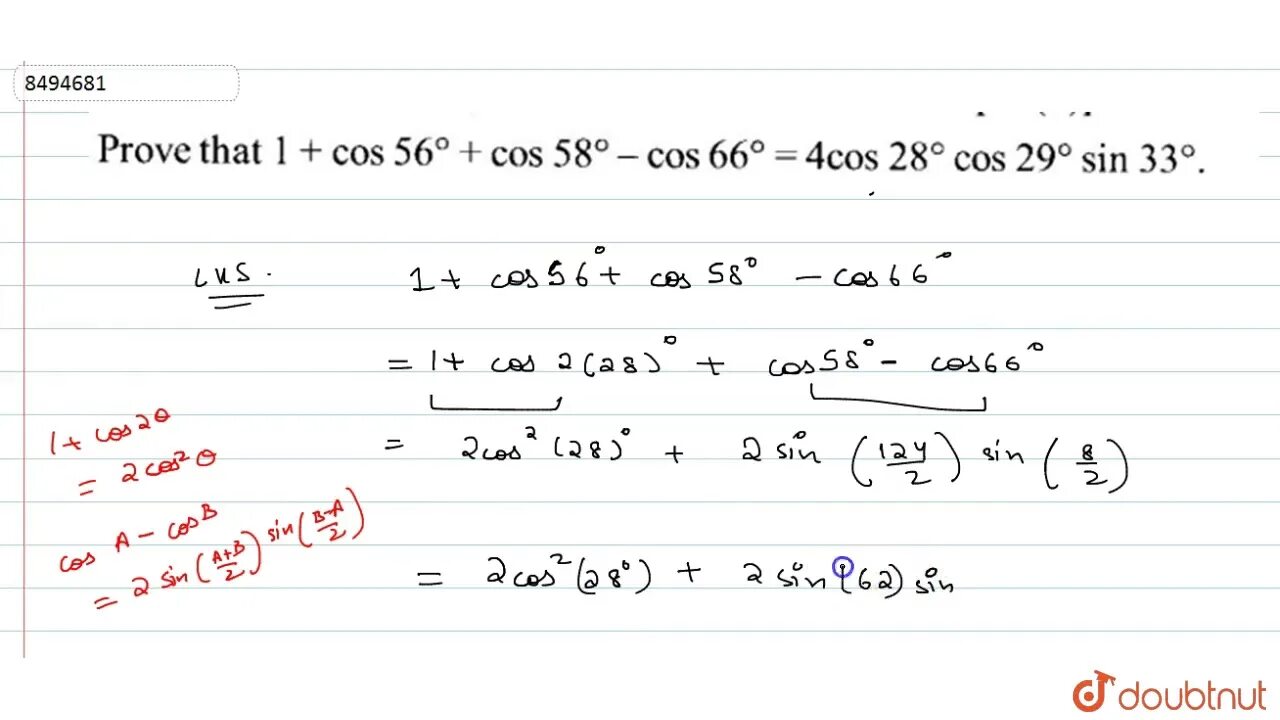 8494681
Prove that 1 + cos 56° + cos 58° – cos 66° = 4cos 28° cos 29° sin 33°.
LHS. 1 + cos 56° + cos 58° – cos 66°
= 1 + cos 2(28)° + cos 58° – cos 66°
= 2cos² (28)° + 2 sin (124/2) sin (8/2)
1 + cos 2θ
= 2cos² θ
cos A – cos B
= 2 sin (A+B/2) sin (B-A/2)
= 2cos² (28°) + 2 sin (62) sin
doubtnut